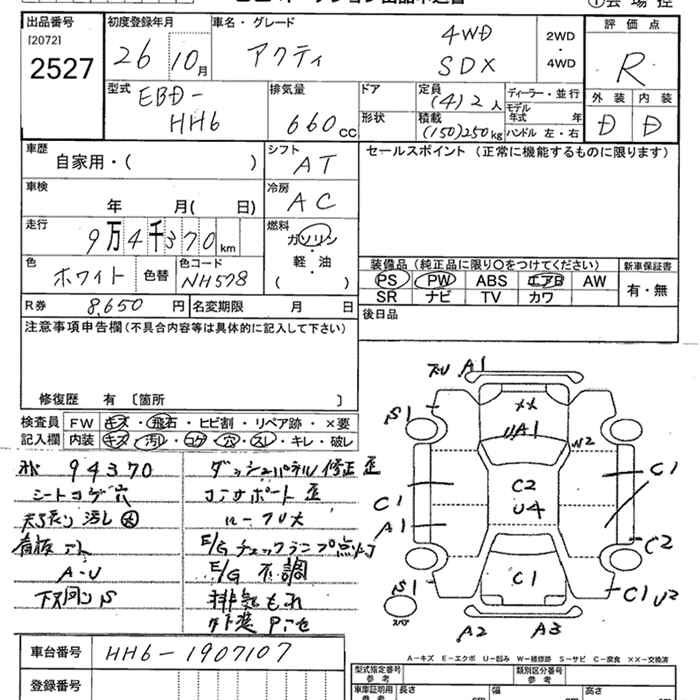 出品番号 初度登録年月 車名・グレード 評価点
[2072]
2527 26 10月 アクティ 4WD SDX 2WD・4WD R
型式 排気量 ドア 定員 ディーラー・並行 外装 内装
EBD-HH6 660CC (4)2人 モデル年式 年
形状 積載 (150)250kg ハンドル 左・右 D D
車歴 シフト セールスポイント (正常に機能するものに限ります)
自家用・( ) AT
車検 冷房
年 月( 日) AC
走行 燃料
9万4千370km ガソリン
軽・油
( )
色 色替 色コード
ホワイト NH578
装備品 (純正品に限り○をつけてください) 新車保証書
PS PW ABS エアB AW 有・無
SR ナビ TV カワ
R券 8,650円 名変期限 月 日 後日品
注意事項申告欄 (不具合内容等は具体的に記入して下さい)
修復歴 有 〔箇所 〕
検査員 FW キズ・飛石・ヒビ割・リペア跡・×要
記入欄 内装 キズ・汚レ・コゲ・穴・スレ・キレ・破レ
94370 ダッシュパネル修正歪
シートコゲ穴 コアサポート歪
天張り汚レ大 ルーフU大
看板アト E/Gチェックランプ点灯
A-U E/G不調
下回りS 排気もれ
外装Pイセ
A1
S1 XX
UA1
W2
C1 C2 C1
A1 U4
C2
S1 C1 C1 U2
スペア
A2 A3
車台番号 HH6-1907107
登録番号
A-キズ E-エクボ U-凹み W-補修跡 S-サビ C-腐食 XX-交換済
型式指定番号 参考 類別区分番号 参考
車庫証明用 参考 長さ cm 幅 cm 高さ cm